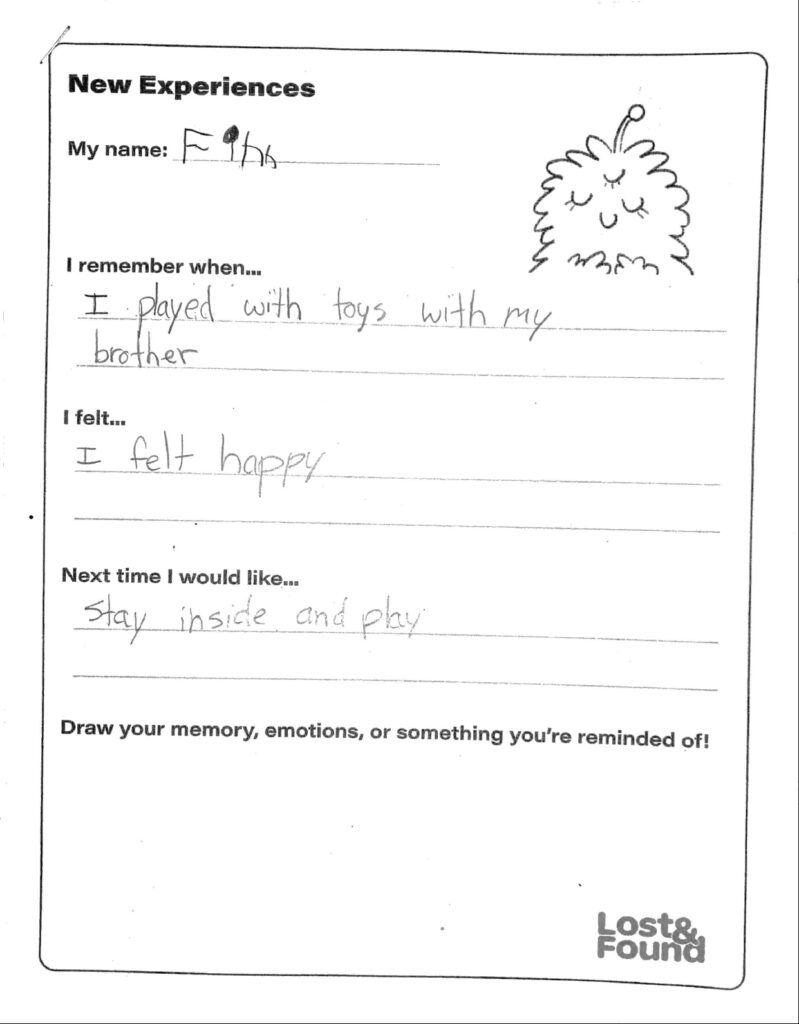 New Experiences
My name: Finn
I remember when...
I played with toys with my
brother
I felt...
I felt happy
Next time I would like...
stay inside and play
Draw your memory, emotions, or something you're reminded of!
Lost&
Found